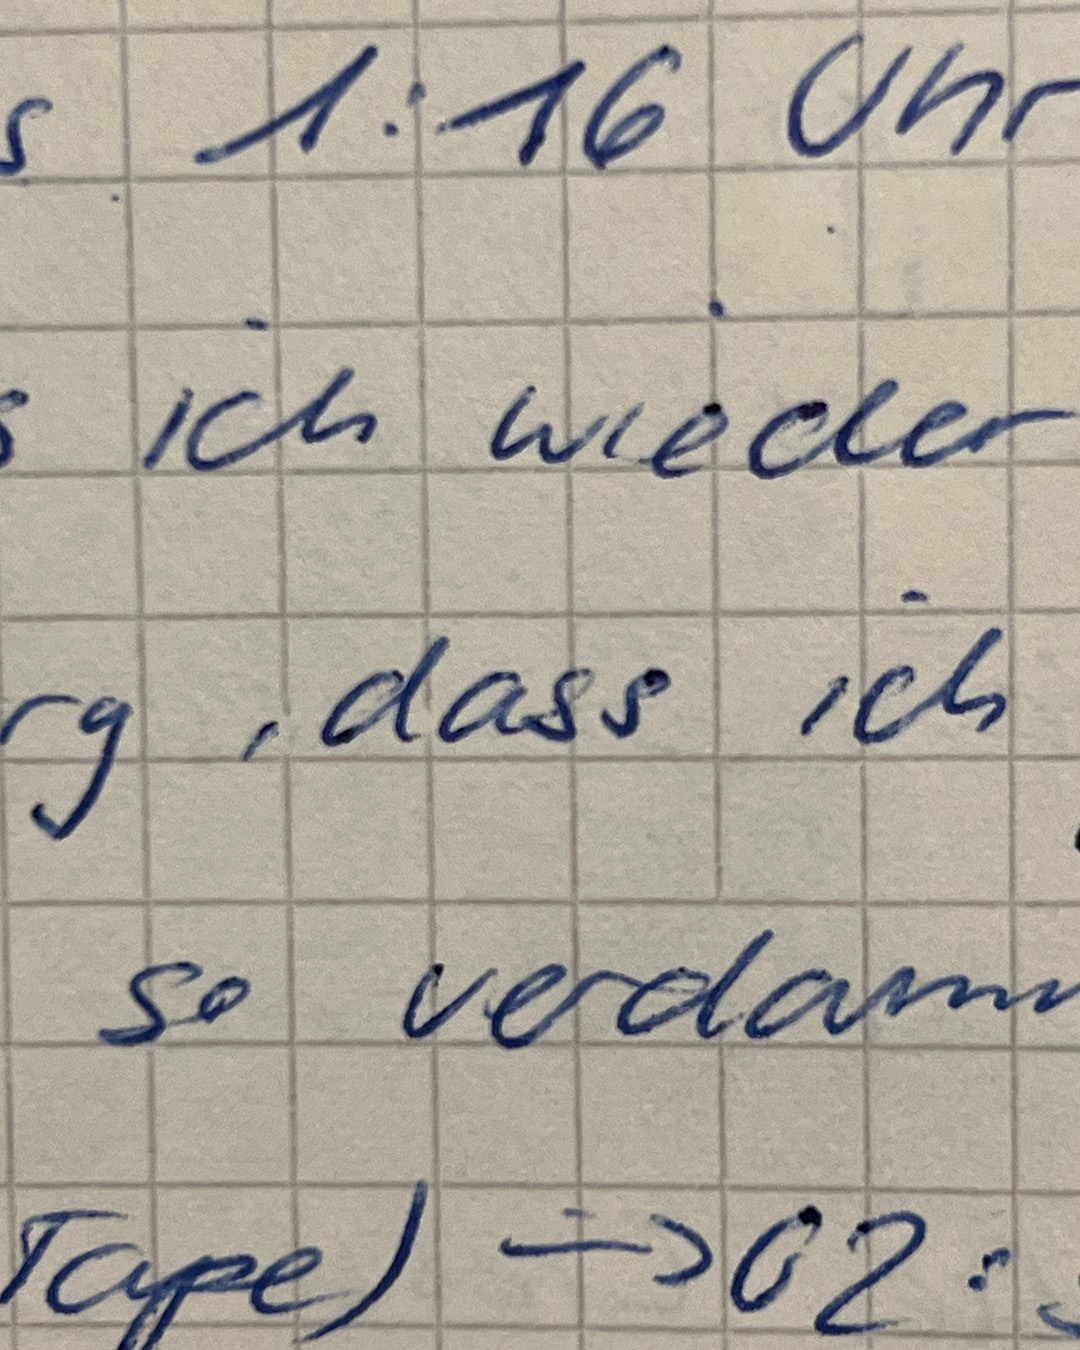 s 1:16 Uhr
s ich wieder
rg, dass ich
so verdamm
Tape) → 02: